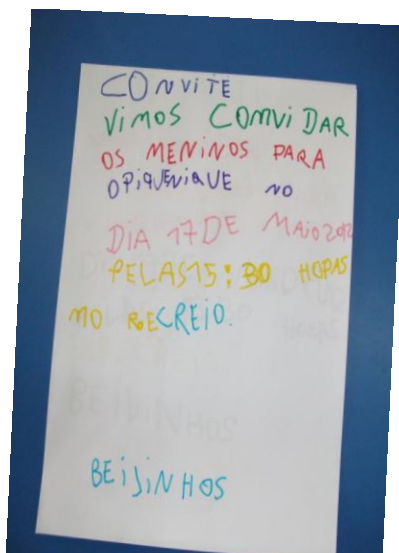 CONVITE
VIMOS COMVIDAR
OS MENINOS PARA
OPIQUENIQUE NO
DIA 17 DE MAIO 2012
PELAS 15:30 HOPAS
NO RECREIO.
BEIJINHOS